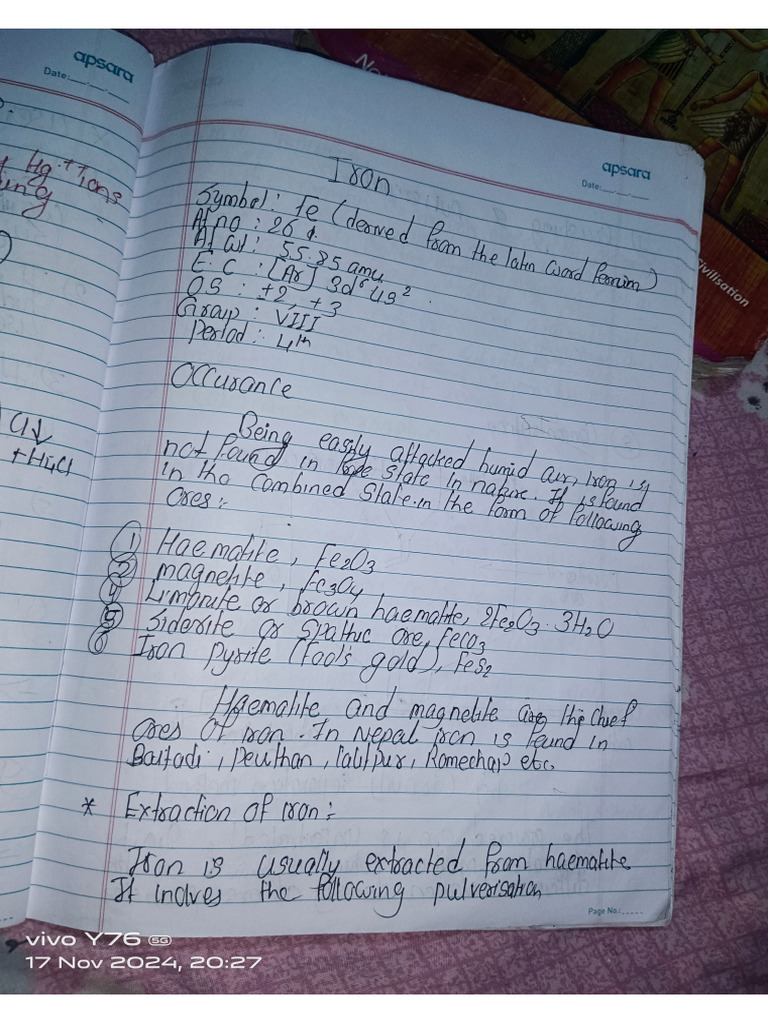 apsara
Date:
Hg++ ions
Cl↓
+H4Cl
apsara
Date:
Civilisation
Iron
Symbol: Fe (derived from the latin word ferrum)
At no : 26
At wt: 55.85 amu
E C : [Ar] 3d6 4s2
OS : +2, +3
Group : VIII
Period : 4th
Occurance
Being easily attacked humid air, iron is
not found in state in nature. It is found
in the combined state in the form of following
ores:-
① Haematite, Fe2O3
② magnetite, Fe3O4
④ Limonite or brown haematite, 2Fe2O3·3H2O
⑤ Siderite or spathic ore, FeCO3
⑥ Iron pyrite (fool's gold), FeS2
Haematite and magnetite are the chief
ores of iron. In Nepal iron is found in
Baitadi, peuthan, lalitpur, Ramechap etc.
* Extraction of iron:-
Iron is usually extracted from haematite
It inolves the following pulverisation
Page No.:
vivo Y76 5G
17 Nov 2024, 20:27